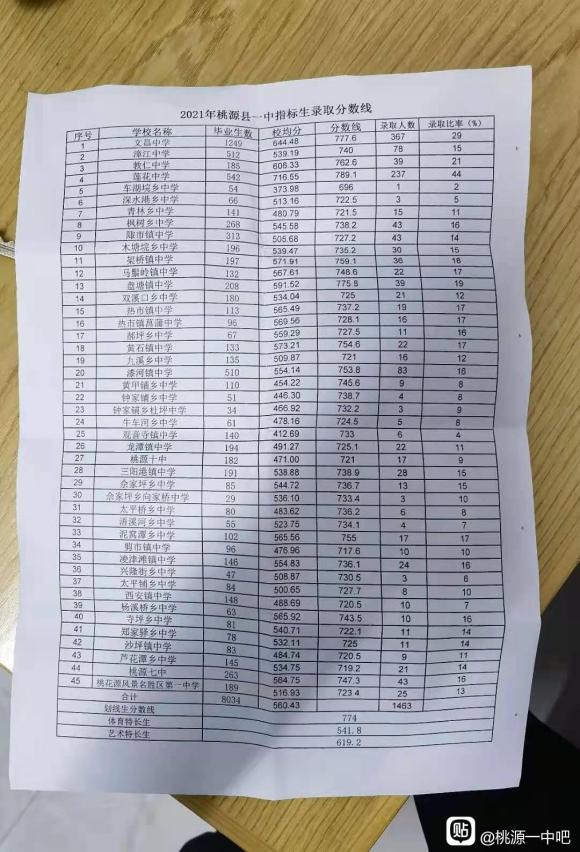 2021年桃源县一中指标生录取分数线
序号 学校名称 毕业生数 校均分 分数线 录取人数 录取比率(%)
1 文昌中学 1249 644.48 777.6 367 29
2 漳江中学 512 539.19 740 78 15
3 教仁中学 185 606.33 762.6 39 21
4 莲花中学 542 716.55 789.1 237 44
5 车湖垸乡中学 54 373.98 696 1 2
6 深水港乡中学 66 513.16 722.5 3 5
7 青林乡中学 141 480.79 721.5 15 11
8 枫树乡中学 268 545.58 738.2 43 16
9 陬市镇中学 313 505.68 727.2 43 14
10 木塘垸乡中学 196 539.47 735.2 30 15
11 架桥镇中学 197 571.91 759.1 36 18
12 马鬃岭镇中学 132 567.61 748.6 22 17
13 盘塘镇中学 208 591.52 775.8 39 19
14 双溪口乡中学 180 534.04 725 21 12
15 热市镇中学 113 565.49 737.2 19 17
16 热市镇菖蒲中学 96 569.56 728.1 16 17
17 郝坪乡中学 67 559.29 727.5 11 16
18 黄石镇中学 133 573.21 754.6 22 17
19 九溪乡中学 135 509.87 721 16 12
20 漆河镇中学 510 554.14 753.8 83 16
21 黄甲铺乡中学 110 454.22 745.6 9 8
22 钟家铺乡中学 51 446.30 738.7 4 8
23 钟家铺乡杜坪中学 34 466.92 732.2 3 9
24 牛车河乡中学 61 478.16 724.5 5 8
25 观音寺镇中学 140 412.69 733 6 4
26 龙潭镇中学 194 491.27 725.1 22 11
27 桃源十中 182 471.00 721 17 9
28 三阳港镇中学 191 538.88 738.9 28 15
29 佘家坪乡中学 85 544.72 736.7 13 15
30 佘家坪乡向家桥中学 29 536.10 733.4 3 10
31 太平桥乡中学 80 483.62 736.2 6 8
32 浯溪河乡中学 55 523.75 734.1 4 7
33 泥窝潭乡中学 102 565.56 755 17 17
34 剪市镇中学 96 476.96 717.6 10 10
35 凌津滩镇中学 146 554.83 736.1 24 16
36 兴隆街乡中学 47 508.87 730.5 3 6
37 太平铺乡中学 84 500.65 727.7 8 10
38 西安镇中学 148 488.69 720.5 10 7
39 杨溪桥乡中学 63 565.92 743.5 10 16
40 寺坪乡中学 81 540.71 722.1 11 14
41 郑家驿乡中学 78 532.11 725 11 14
42 沙坪镇中学 83 484.74 720.5 9 11
43 芦花潭乡中学 145 534.75 719.2 21 14
44 桃源七中 263 564.75 747.3 43 16
45 桃花源风景名胜区第一中学 189 516.93 723.4 25 13
合计 8034 560.43 1463
划线生分数线 774
体育特长生 541.8
艺术特长生 619.2
贴 @桃源一中吧